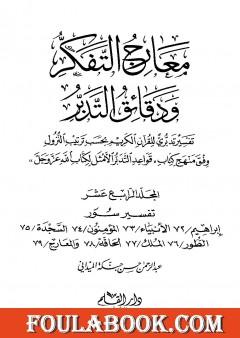 معارج التفكر
ودقائق التدبر
تفسير تدبري للقرآن الكريم بحسب ترتيب النزول
وفق منهج كتاب «قواعد التدبر الأمثل لكتاب الله عز وجل»
المجلد الرابع عشر
تفسير سور
إبراهيم/٧٢ الأنبياء/٧٣ المؤمنون/٧٤ السجدة/٧٥
الطور/٧٦ الملك/٧٧ الحاقة/٧٨ والمعارج/٧٩
عبد الرحمن حسن حبنكة الميداني
دار القلم
FOULABOOK.COM